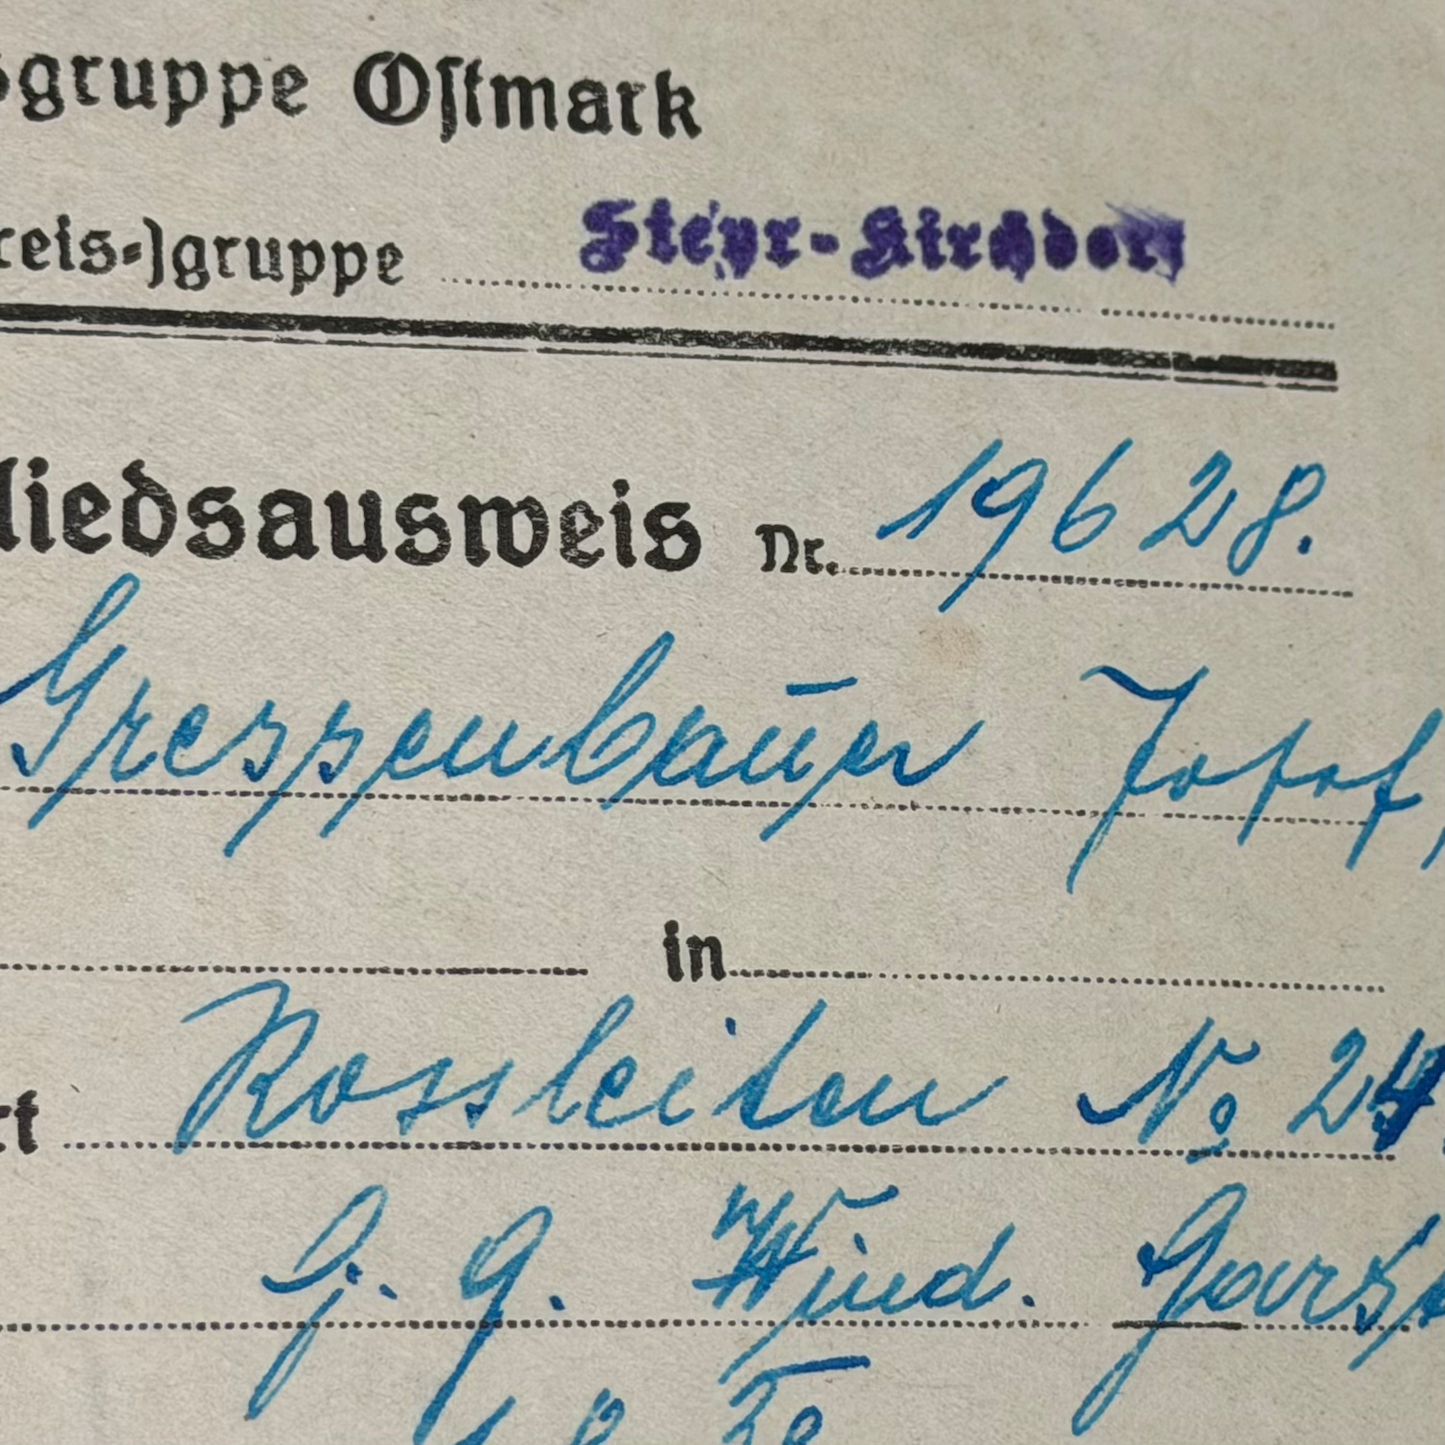 sgruppe Ostmark
reis-)gruppe Steyr-Kirchdorf
liedsausweis Nr. 19628.
Gressenbauer Josef,
in
rt Rossleiten No 24
J. G. Wind. Garst